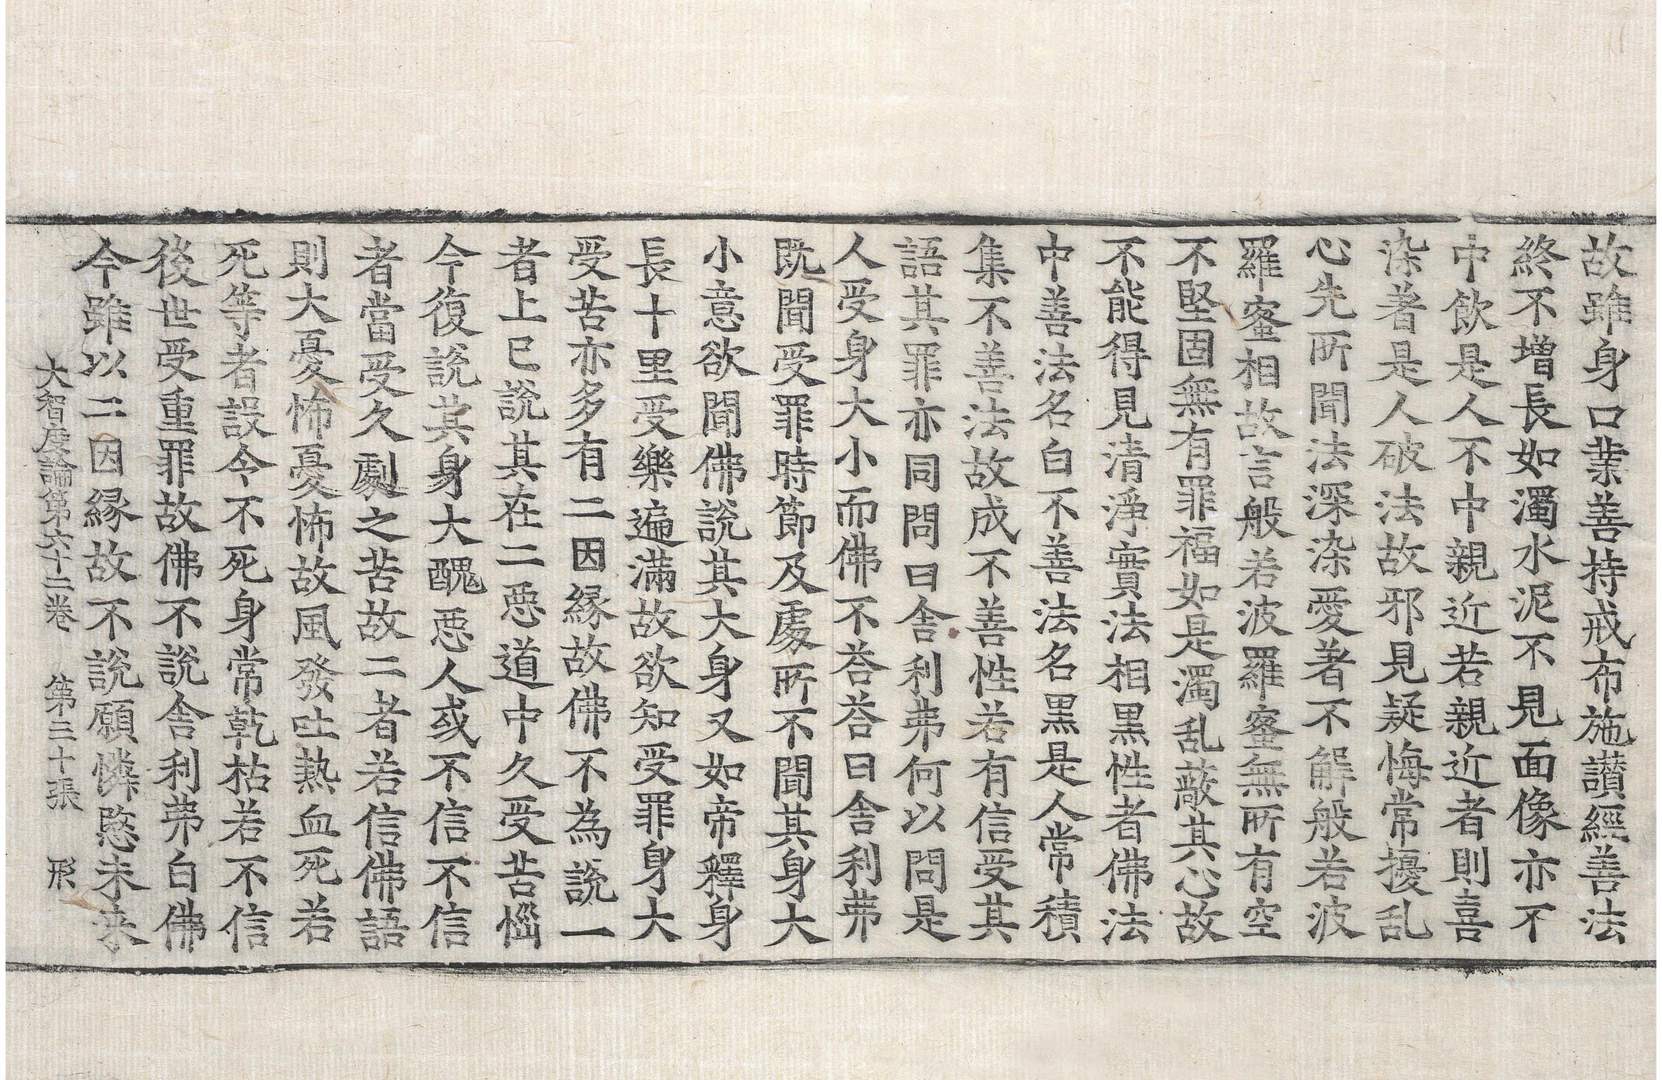 故雖身口業善持戒布施讃經善法
終不增長如濁水泥不見面像亦不
中飲是人不中親近若親近者則喜
染著是人破法故邪見疑悔常擾乱
心先所聞法深染愛著不解般若波
羅蜜相故言般若波羅蜜無所有空
不堅固無有罪福如是濁乱蔽其心故
不能得見清淨實法相黑性者佛法
中善法名白不善法名黑是人常積
集不善法故成不善性若有信受其
語其罪亦同問曰舍利弗何以問是
人受身大小而佛不荅荅曰舍利弗
既聞受罪時節及處所不聞其身大
小意欲聞佛說其大身又如帝釋身
長十里受樂遍滿故欲知受罪身大
受苦亦多有二因縁故佛不為說一
者上已說其在二惡道中久受苦惱
今復說其身大醜惡人或不信不信
者當受久劇之苦故二者若信佛語
則大憂怖憂怖故風發吐熱血死若
死等者設今不死身常乾枯若不信
後世受重罪故佛不說舍利弗白佛
今雖以二因縁故不說願憐愍未来
大智度論第六十二卷 第三十張 形